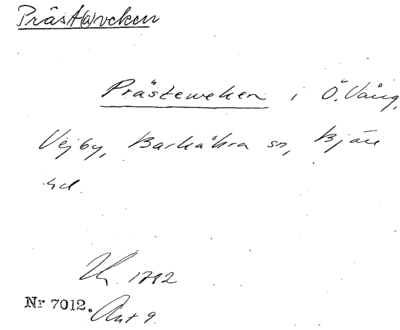 Präst(a)veken
Prästeweken i Ö. Vång,
Vejby, Barkåkra sn, Bjäre
hd
1792
Nr 7012. Akt 9.